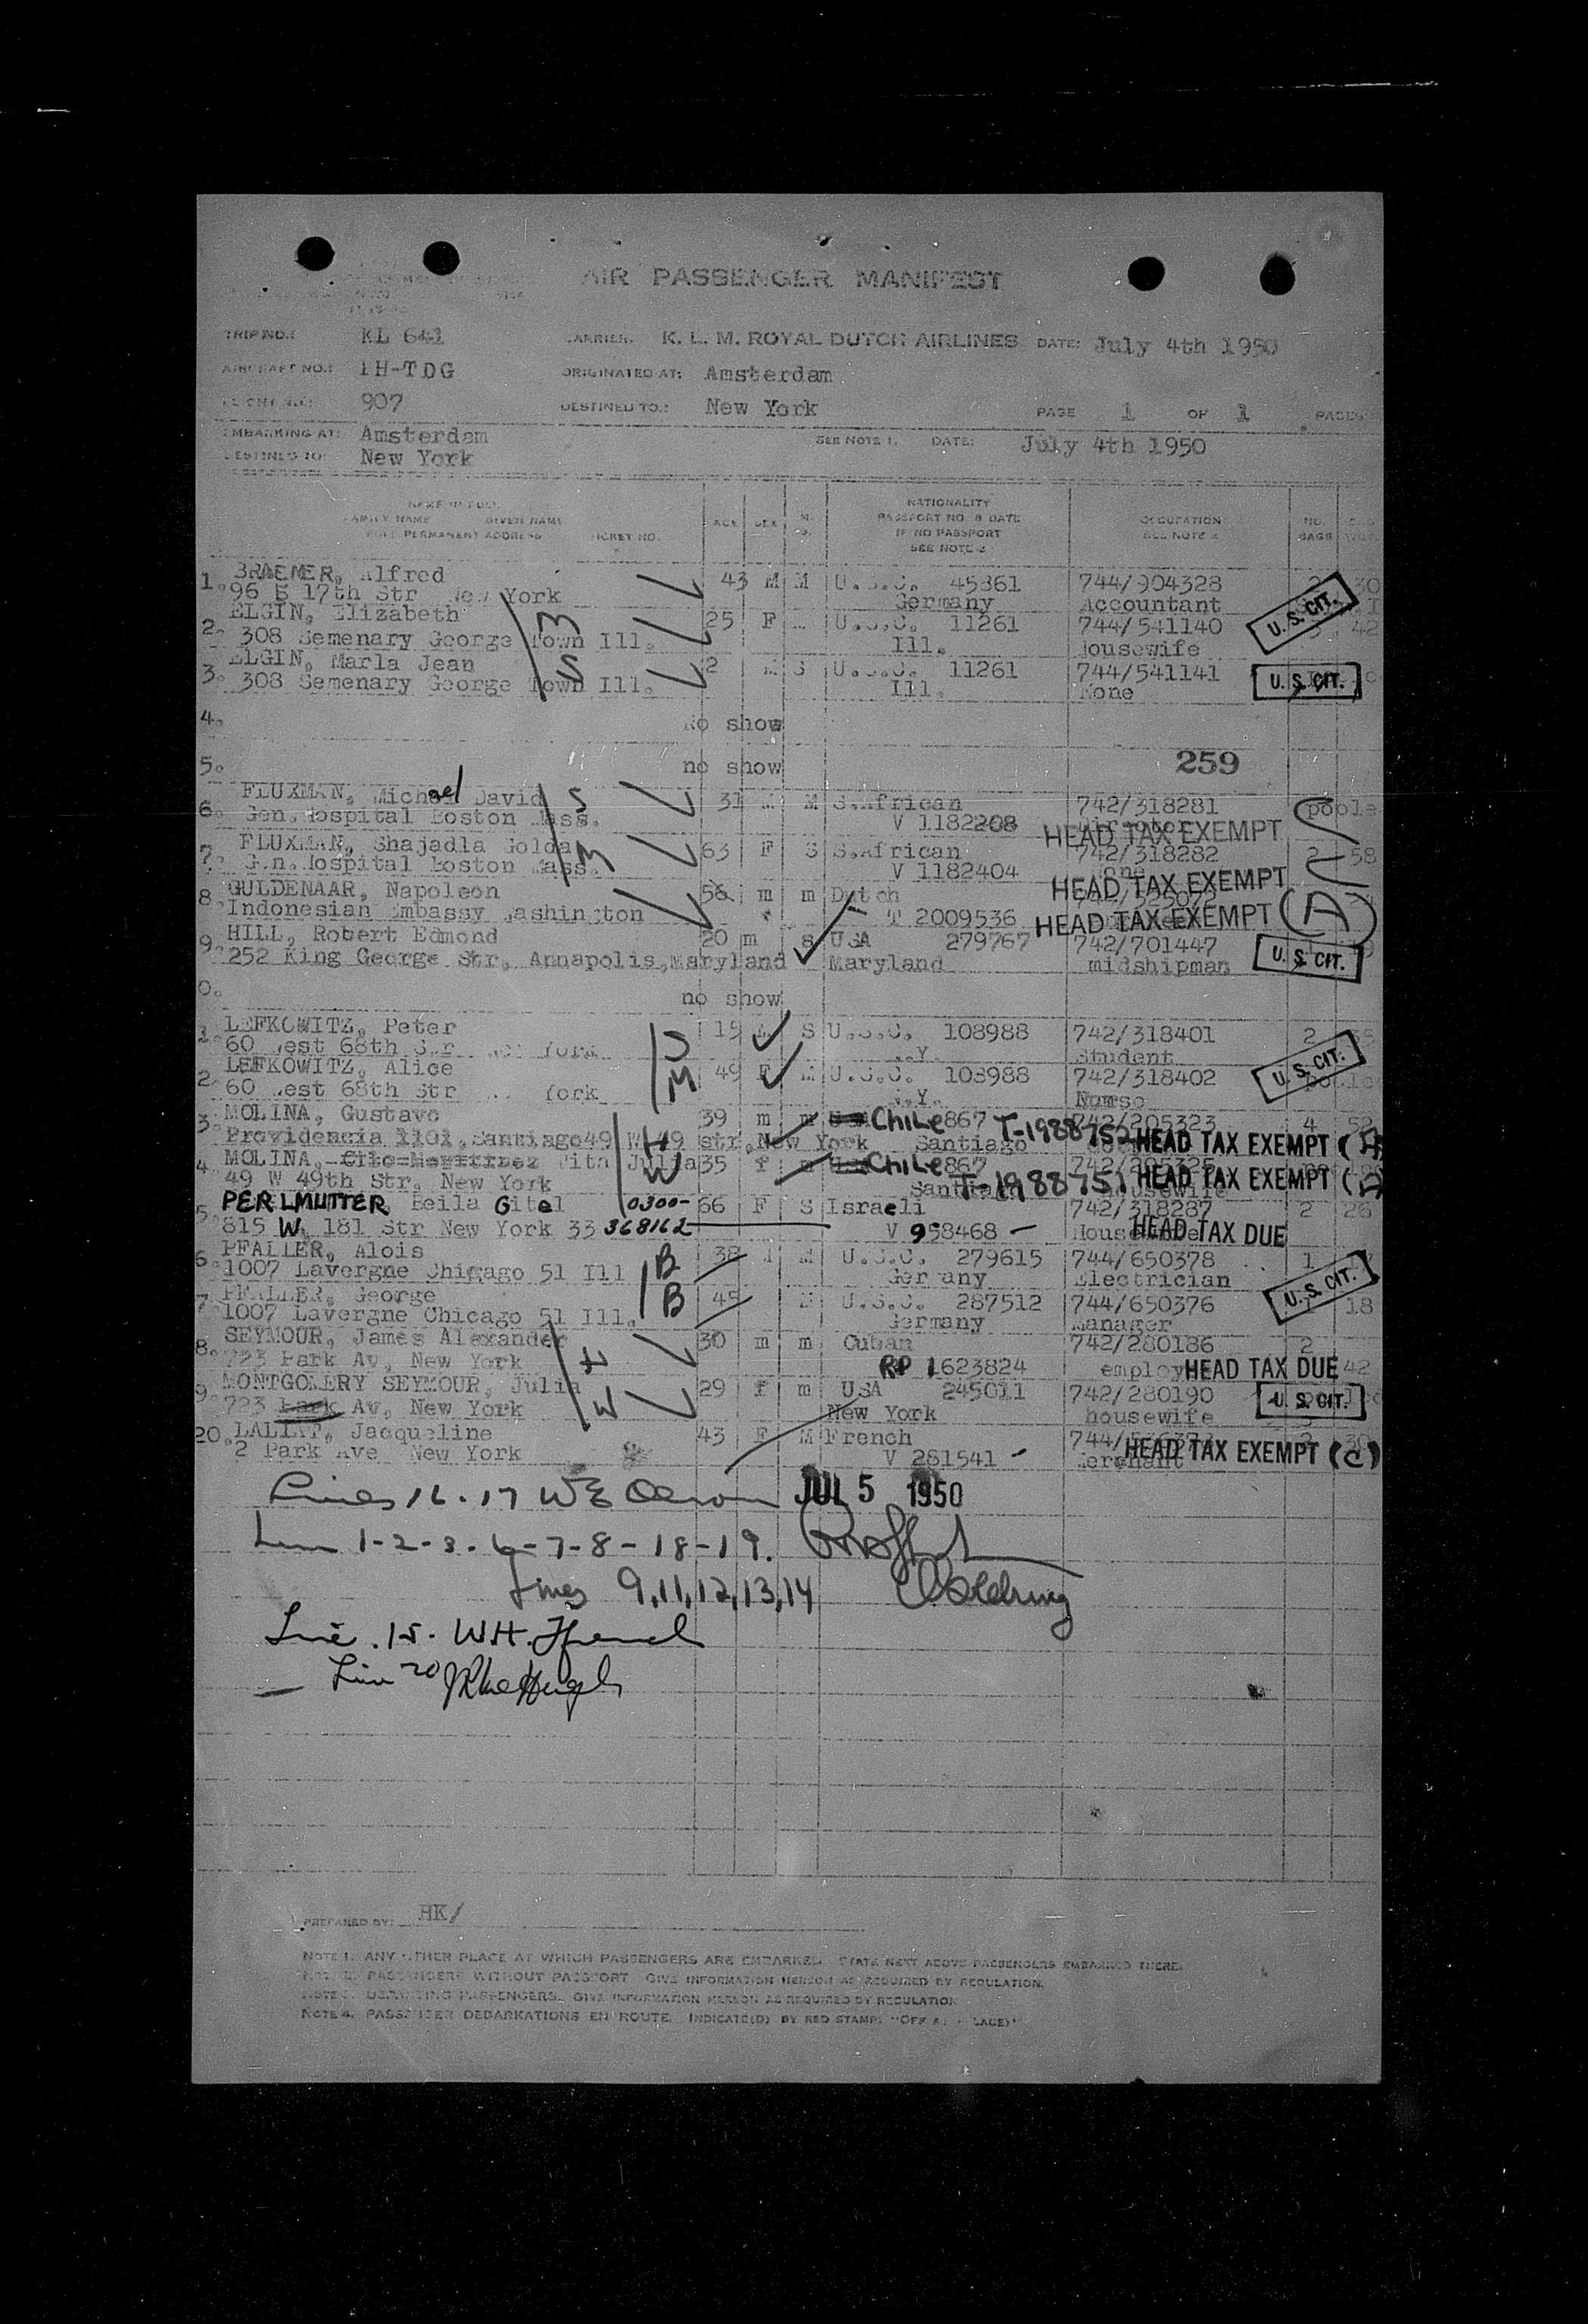 AIR PASSENGER MANIFEST
TRIP NO.: KL 641 CARRIER: K. L. M. ROYAL DUTCH AIRLINES DATE: July 4th 1950
AIRCRAFT NO.: PH-TDG ORIGINATED AT: Amsterdam
FLIGHT NO.: 907 DESTINED TO.: New York PAGE 1 OF 1 PAGES
EMBARKING AT: Amsterdam SEE NOTE 1. DATE: July 4th 1950
DESTINED TO: New York
NAME IN FULL NATIONALITY
FAMILY NAME GIVEN NAME AGE SEX PASSPORT NO. & DATE OCCUPATION NO.
FULL PERMANENT ADDRESS TICKET NO. IF NO PASSPORT SEE NOTE 2 BAGS
SEE NOTE 2
1. BRAEMER, Alfred 43 M M U.S.C. 45361 744/904328
96 E 17th Str New York Germany Accountant U. S. CIT.
2. ELGIN, Elizabeth 25 F U.S.C. 11261 744/541140
308 Semenary George Town Ill. Ill. Housewife 42
3. ELGIN, Marla Jean 2 S U.S.C. 11261 744/541141
308 Semenary George Town Ill. Ill. None U. S. CIT.
4. No show
5. no show 259
6. FLUXMAN, Michael David S 31 M M S.African 742/318281 poole
Gen.Hospital Boston Mass. V 1182208 HEAD TAX EXEMPT
7. FLUXMAN, Shajadla Golda M 63 F S S.African 742/318282 2 58
Gen.Hospital Boston Mass. V 1182404 HEAD TAX EXEMPT
8. GULDENAAR, Napoleon 56 m m Dutch
Indonesian Embassy Washington T 2009536 HEAD TAX EXEMPT (A)
9. HILL, Robert Edmond 20 m s USA 279767 742/701447
252 King George Str, Annapolis,Maryland Maryland midshipman U. S. CIT.
0. no show
1. LEFKOWITZ, Peter S 19 M S U.S.C. 108988 742/318401 2
60 West 68th Str New York N.Y. Student U. S. CIT.
2. LEFKOWITZ, Alice M 49 F M U.S.C. 108988 742/318402
60 West 68th Str York N.Y.
3. MOLINA, Gustavo H 39 m m Chile 867 T-1988752 742/205323 4 52
Providencia 1101,Santiago49 W 49 str,New York Santiago HEAD TAX EXEMPT (A)
4. MOLINA, Julia W 35 f m Chile 867
49 W 49th Str. New York Santiago T-1988751 housewife HEAD TAX EXEMPT (A)
5. PERLMUTTER, Beila Gitel 0300- 66 F S Israeli 742/318287 2 26
815 W. 181 Str New York 33 368162 V 958468 Housewife HEAD TAX DUE
6. PFALLER, Alois B 38 M U.S.C. 279615 744/650378 1
1007 Lavergne Chicago 51 Ill Germany Electrician U. S. CIT.
7. PFALLER, George B 45 M U.S.C. 287512 744/650376 18
1007 Lavergne Chicago 51 Ill. Germany Manager
8. SEYMOUR, James Alexander H 30 m m Cuban 742/280186 2
723 Park Av, New York RP 1623824 employ HEAD TAX DUE 42
9. MONTGOMERY SEYMOUR, Julia W 29 f m USA 245011 742/280190
723 Park Av, New York New York housewife U. S. CIT.
20. Jacqueline 43 F M French
2 Park Ave New York V 281541 Merchant HEAD TAX EXEMPT (C)
Lines 16-17 JUL 5 1950
Lines 1-2-3-6-7-8-18-19.
Lines 9,11,12,13,14
Line 15- W.H.
Line 20
PREPARED BY: HK/
NOTE 1. ANY OTHER PLACE AT WHICH PASSENGERS ARE EMBARKED. STATE NEXT ABOVE PASSENGERS EMBARKED THERE.
NOTE 2. PASSENGERS WITHOUT PASSPORT GIVE INFORMATION HEREON AS REQUIRED BY REGULATION.
NOTE 3. DEPARTING PASSENGERS. GIVE INFORMATION HEREON AS REQUIRED BY REGULATION
NOTE 4. PASSENGER DEBARKATIONS EN ROUTE. INDICATE(D) BY RED STAMP: "OFF AT (PLACE)"